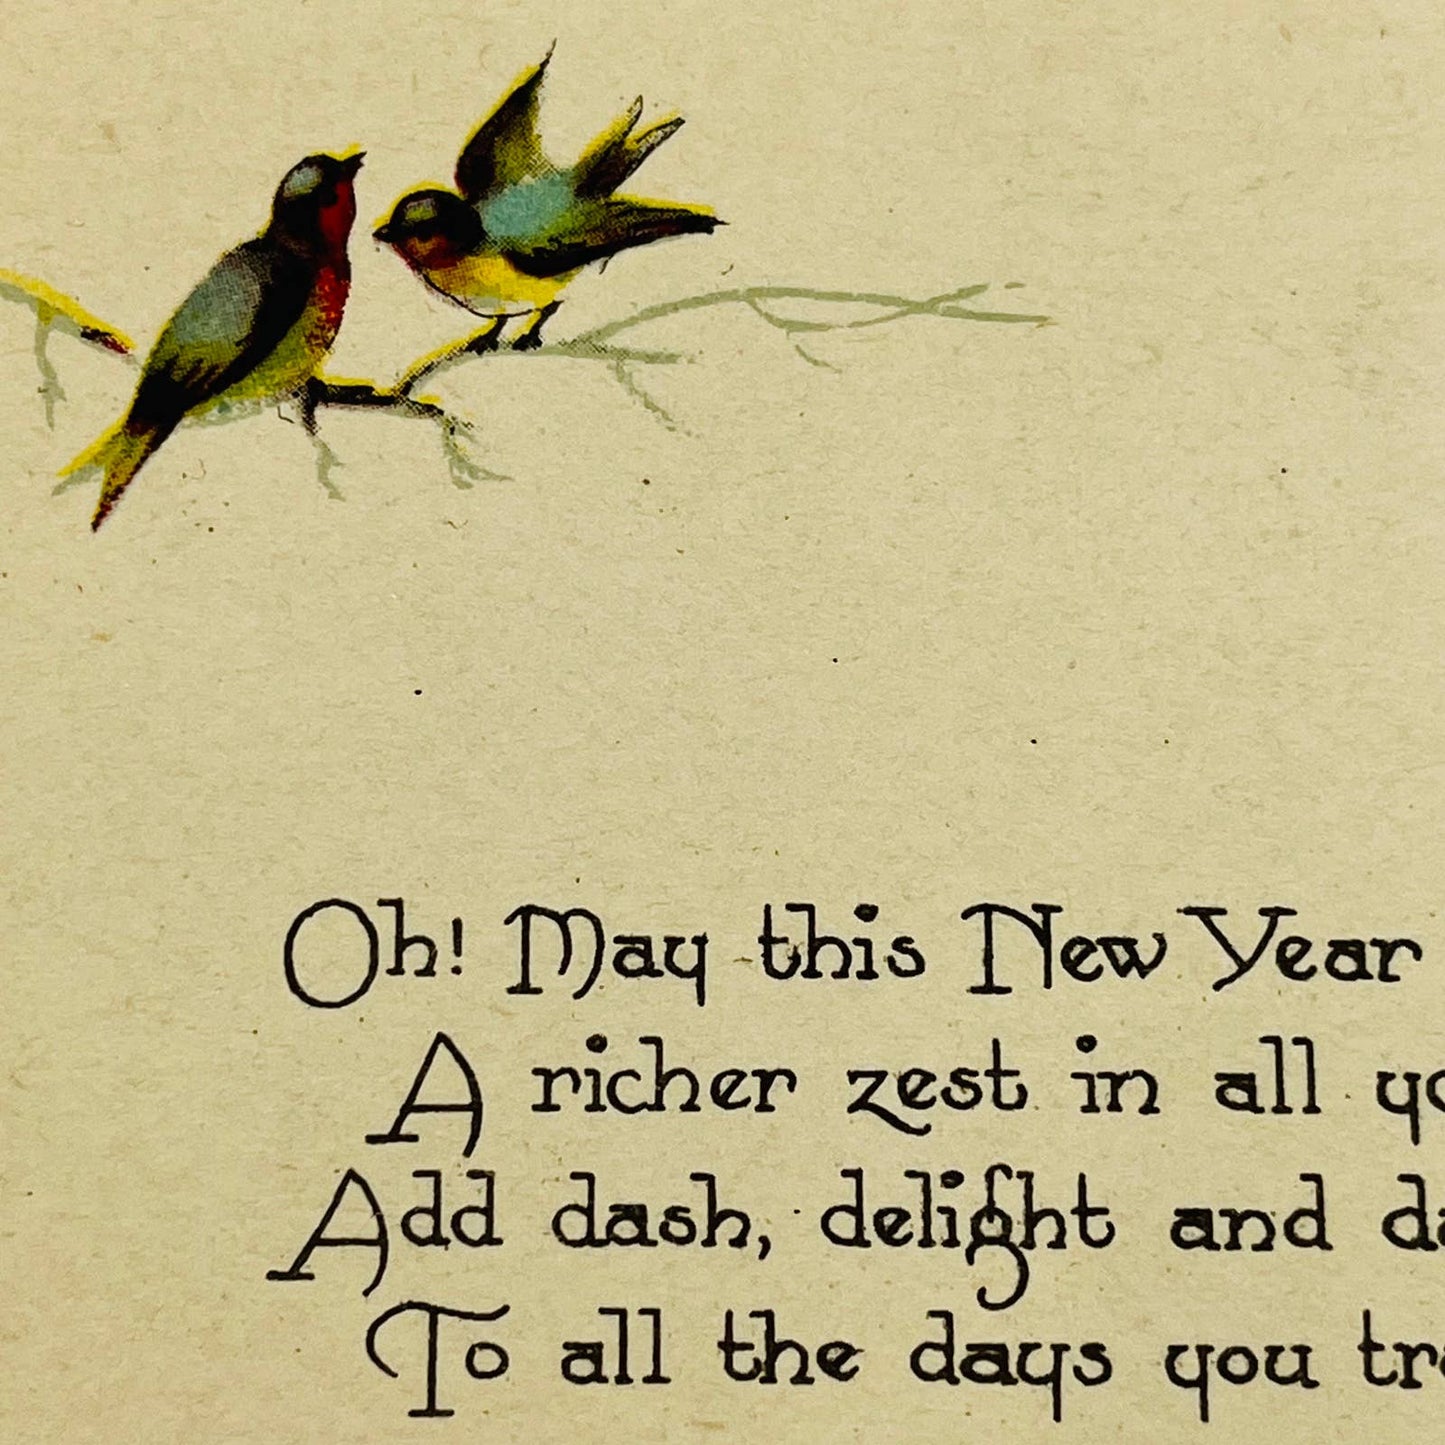 Oh! May this New Year
A richer zest in all
Add dash, delight and
To all the days you